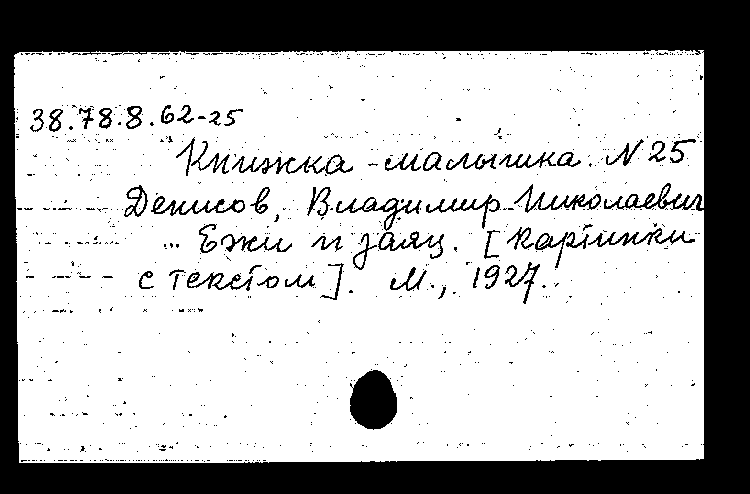 38.78.8.62-25
Книжка-малышка. N 25
Денисов, Владимир Николаевич
... Ежи и заяц. [Картинки
с текстом]. М., 1927.